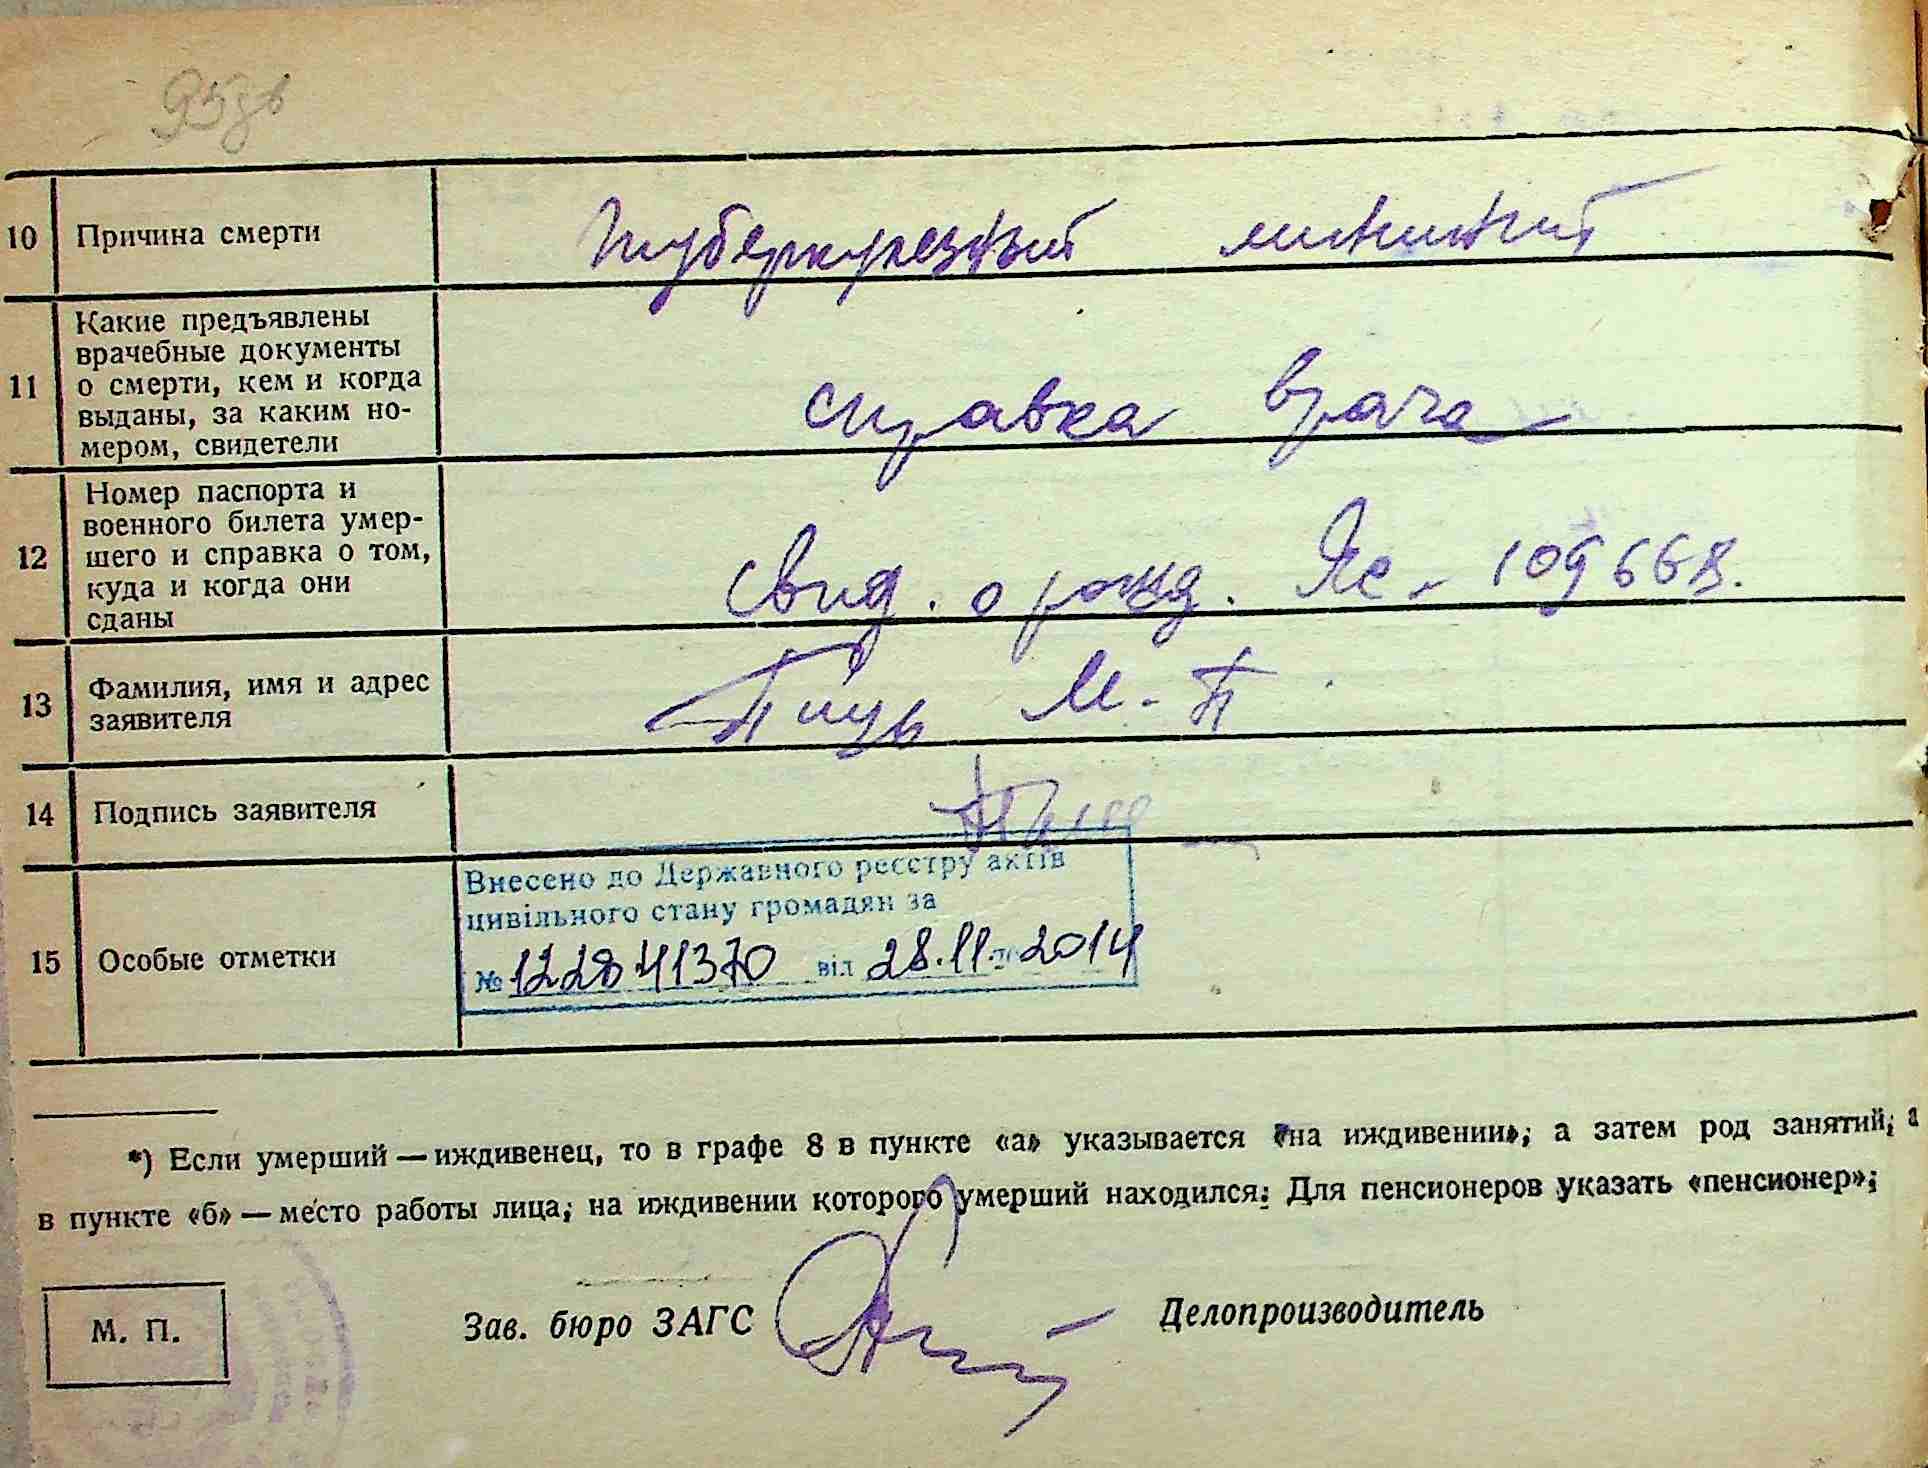 10 Причина смерти Туберкулезный менингит
11 Какие предъявлены
врачебные документы
о смерти, кем и когда
выданы, за каким но-
мером, свидетели
справка врача
12 Номер паспорта и
военного билета умер-
шего и справка о том,
куда и когда они
сданы
Свид. о рожд. ЯЕ - 109668.
13 Фамилия, имя и адрес
заявителя
М. П.
14 Подпись заявителя
15 Особые отметки
Внесено до Державного реєстру актів
цивільного стану громадян за
№ 1228 41370 від 28.11. 2014
*) Если умерший — иждивенец, то в графе 8 в пункте «а» указывается «на иждивении», а затем род занятий, а
в пункте «б» — место работы лица, на иждивении которого умерший находился. Для пенсионеров указать «пенсионер»;
М. П.
Зав. бюро ЗАГС
Делопроизводитель